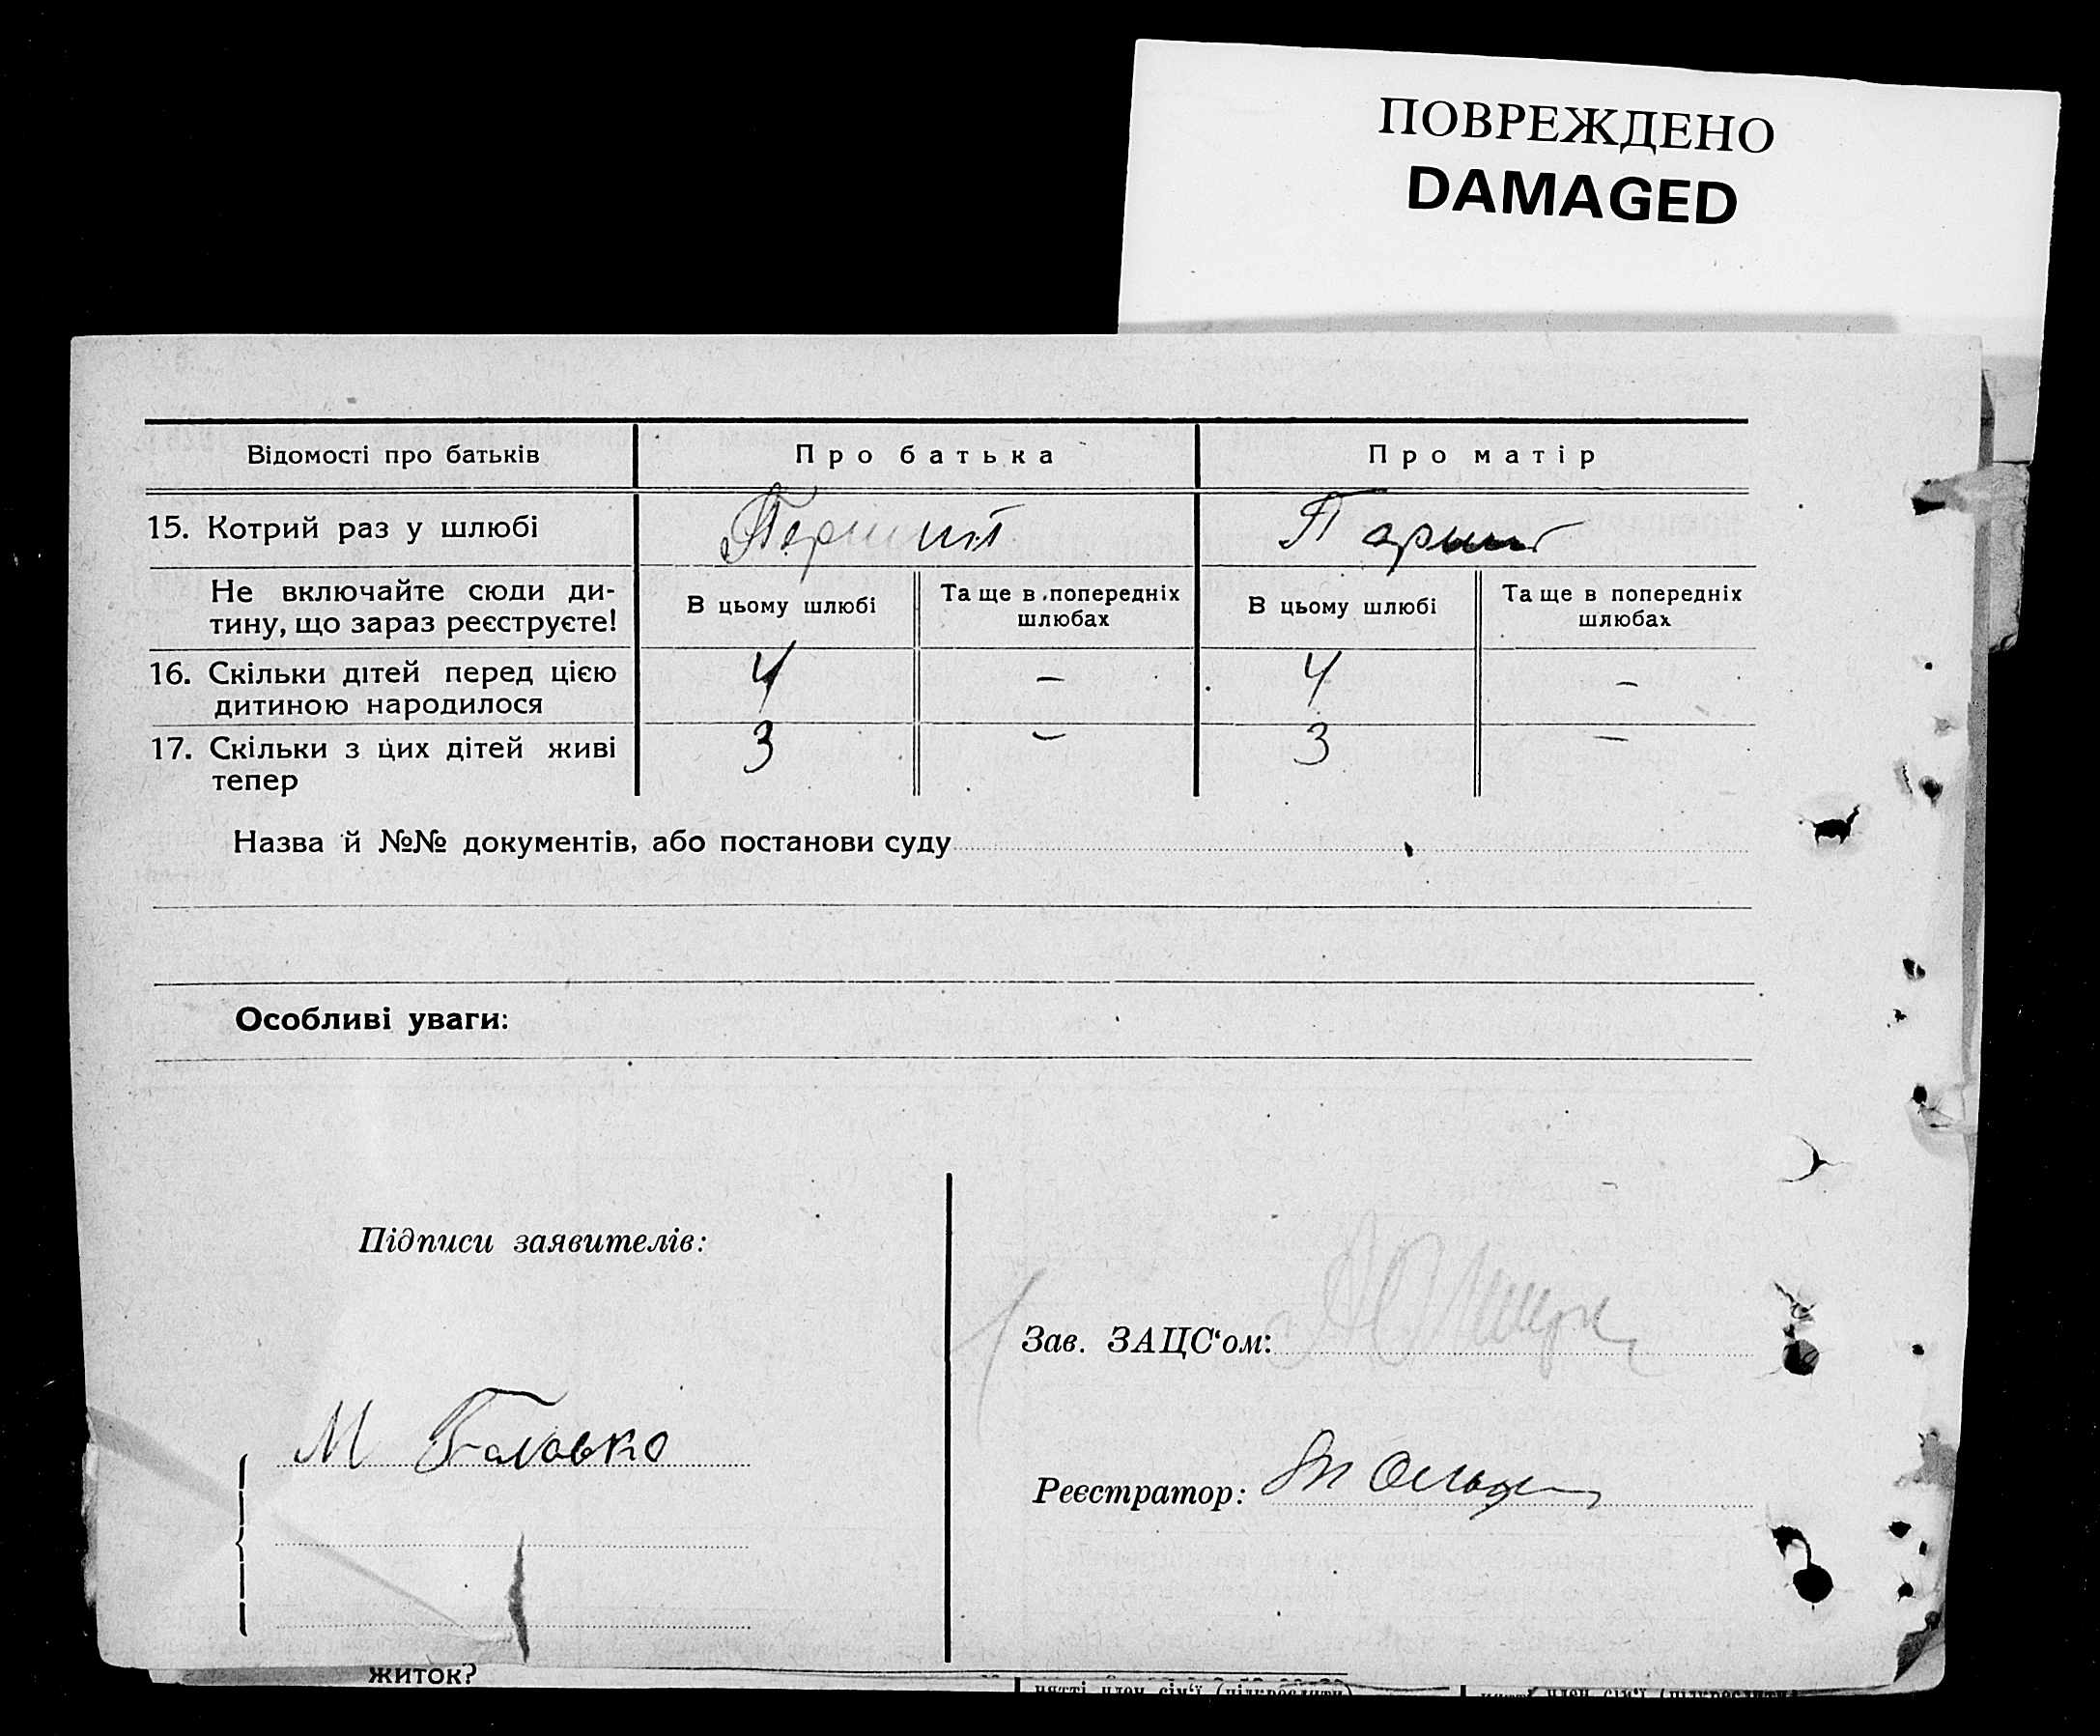 ПОВРЕЖДЕНО
DAMAGED
Відомості про батьків
Про батька
Про матір
15. Котрий раз у шлюбі
Перший
Не включайте сюди ди-
тину, що зараз реєструєте!
В цьому шлюбі
Та ще в попередніх
шлюбах
В цьому шлюбі
Та ще в попередніх
шлюбах
16. Скільки дітей перед цією
дитиною народилося
4
–
4
–
17. Скільки з цих дітей живі
тепер
3
–
3
–
Назва й №№ документів, або постанови суду
Особливі уваги:
Підписи заявителів:
Зав. ЗАЦС‘ом:
М Головко
Реєстратор:
житок?